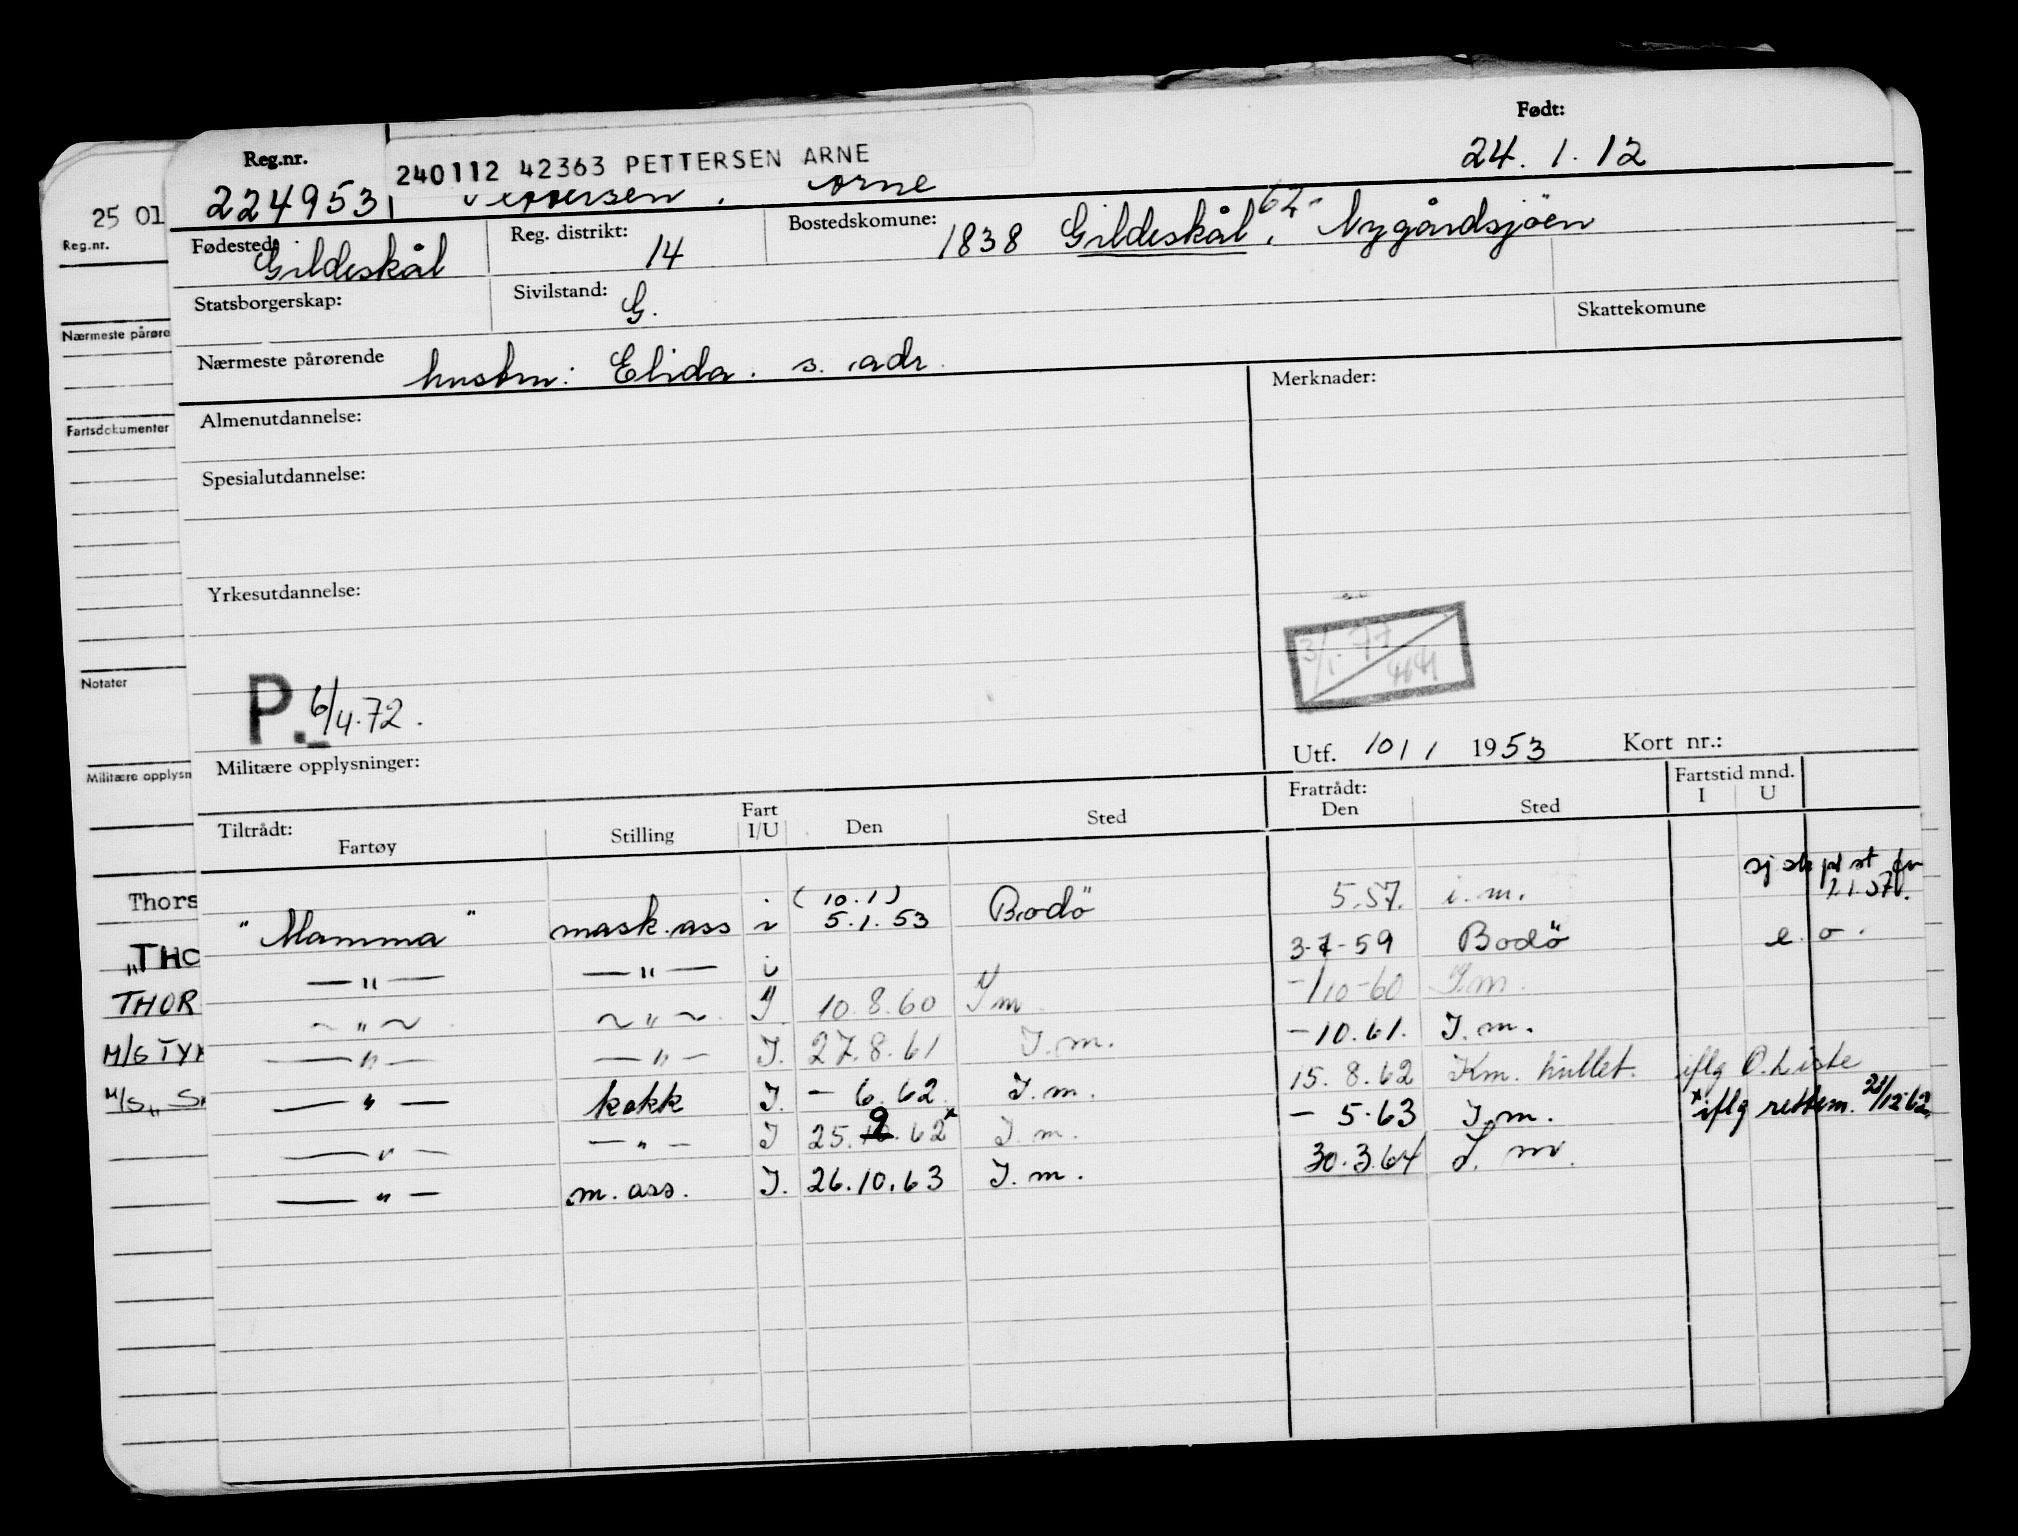 Født:
Reg.nr. 240112 42363 PETTERSEN ARNE 24.1.12
224953 Pettersen, Arne
Fødested: Gildeskål Reg. distrikt: 14 Bostedskomune: 1838 Gildeskål, 62- Nygårdsjöen
Statsborgerskap: Sivilstand: G. Skattekomune
Nærmeste pårørende hustru: Elida. s. adr.
Merknader:
Almenutdannelse:
Spesialutdannelse:
Yrkesutdannelse:
3/1.77
P. 6/4.72.
Utf. 10/1 1953 Kort nr.:
Militære opplysninger:
Tiltrådt: Fartøy Stilling Fart I/U Den Sted Fratrådt: Den Sted Fartstid mnd. I U
"Mamma" mask.ass i (10.1) 5.1.53 Bodö 5.57. i.m.
—"— —"— i 3-7-59 Bodö e.o.
~"~ ~"~ I 10.8.60 I m -/10-60 I.m.
—"— —"— I. 27.8.61 I.m. -10.61. I.m.
—"— kokk I. - 6.62. I.m. 15.8.62 Km. hullet. iflg O.Liste
—"— —"— I 25.9.62x I.m. - 5.63 I.m. x iflg rettem. 21/12.62.
—"— m.ass. I. 26.10.63 I.m. 30.3.64 I.m.
25 01
Reg.nr.
Nærmeste pårøre
Fartsdokumenter
Notater
Militære opplysn
Thors
"THO
THOR
M/G TY
M/S